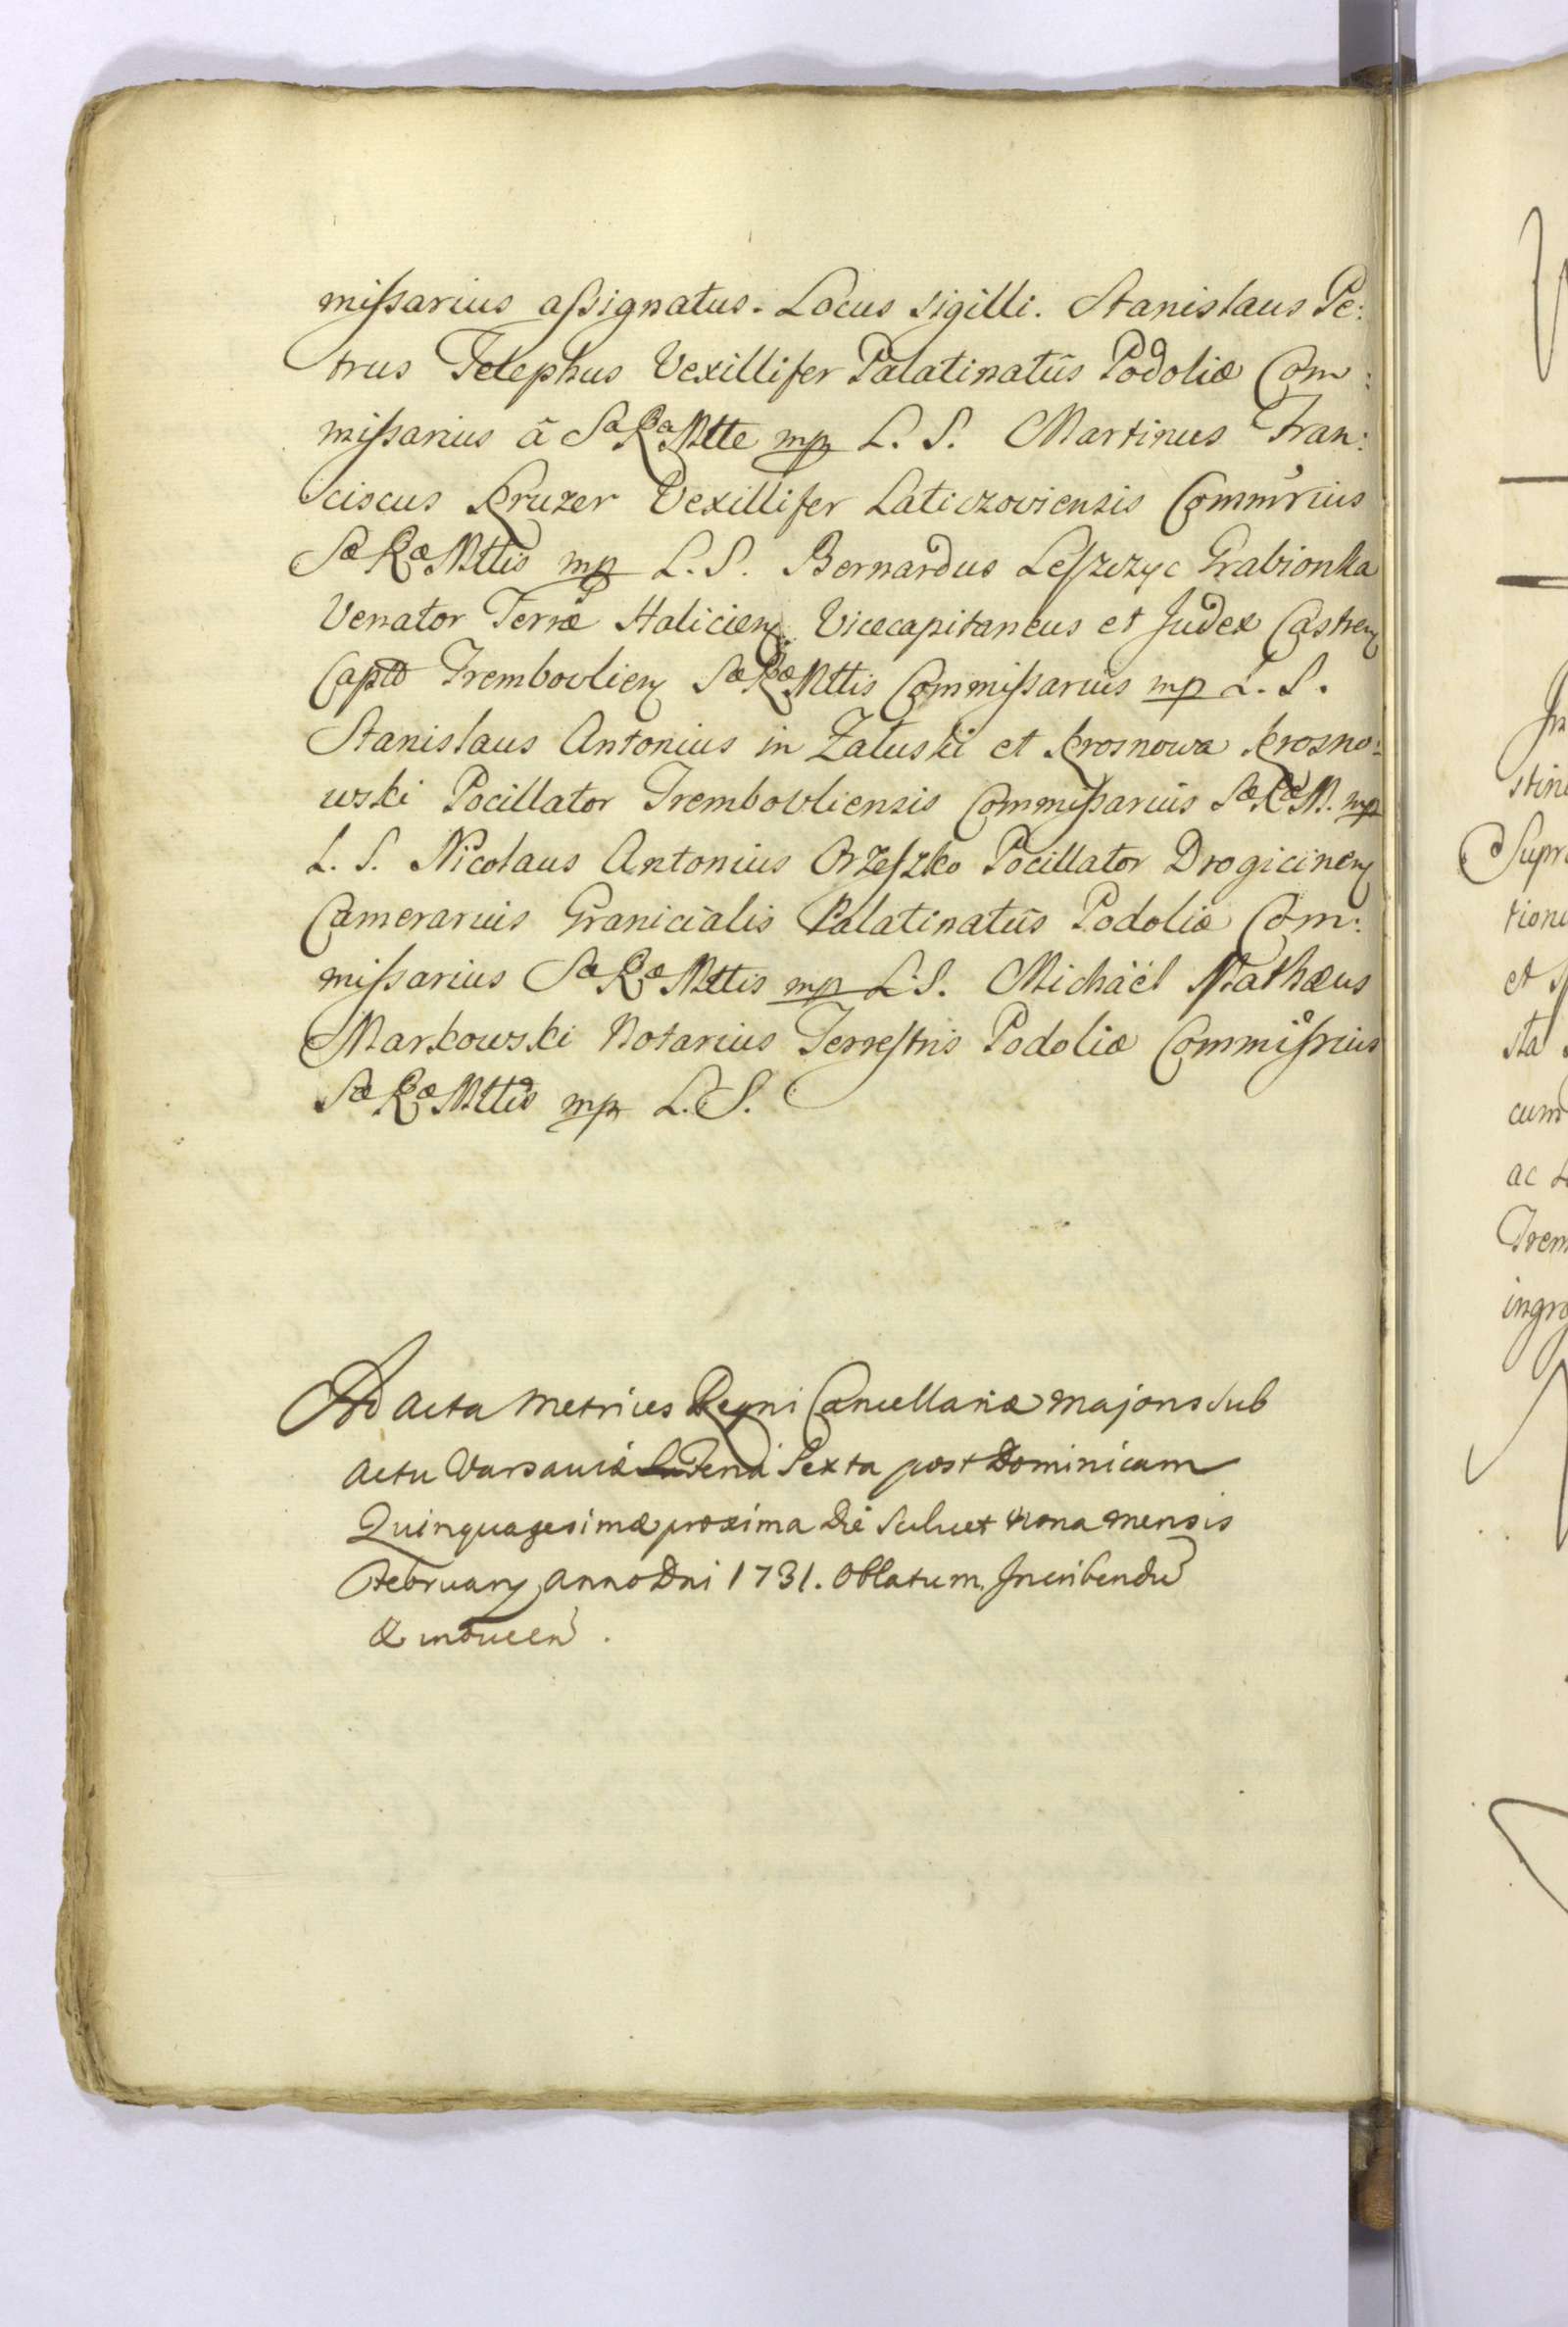 mißarius aßignatus. Locus Sigilli. Stanislaus Pe:
trus Telephus Vexillifer Palatinatûs Podoliæ Com:
mißarius â Sa Ra Mtte mp L. S. Martinus Fran:
ciscus Kruzer Vexillifer Laticzoviensis Commrius
Sæ Ræ Mttis mp L. S. Bernardus Leszczyc Grabionka
Venator Terræ Halicien. Vicecapitaneus et Judex Castren
Captd Trembovlien Sæ Ræ Mttis Commißarius mp L. S.
Stanislaus Antonius in Zaluski et Krosnowa Krosno:
wski Pocillator Trembovliensis Commißarius Sæ Ræ M. mp
L. S. Nicolaus Antonius Orzeszko Pocillator Drogicinen
Camerarius Granicialis Palatinatûs Podoliæ Com:
mißarius Sæ Ræ Mttis mp L. S. Michaël Mathæus
Markowski Notarius Terrestris Podoliæ Commißrius
Sæ Ræ Mttis mp L. S.
Ad Acta Metrices Regni Cancellariæ Majoris sub
Actu Varsaviæ Feria Sexta post Dominicam
Quinquagesimæ proxima Die Scilicet nona mensis
February anno Dni 1731. Oblatum, Inscribendũ
&
Supr
et
sta
cum
ac
Trem
ingro